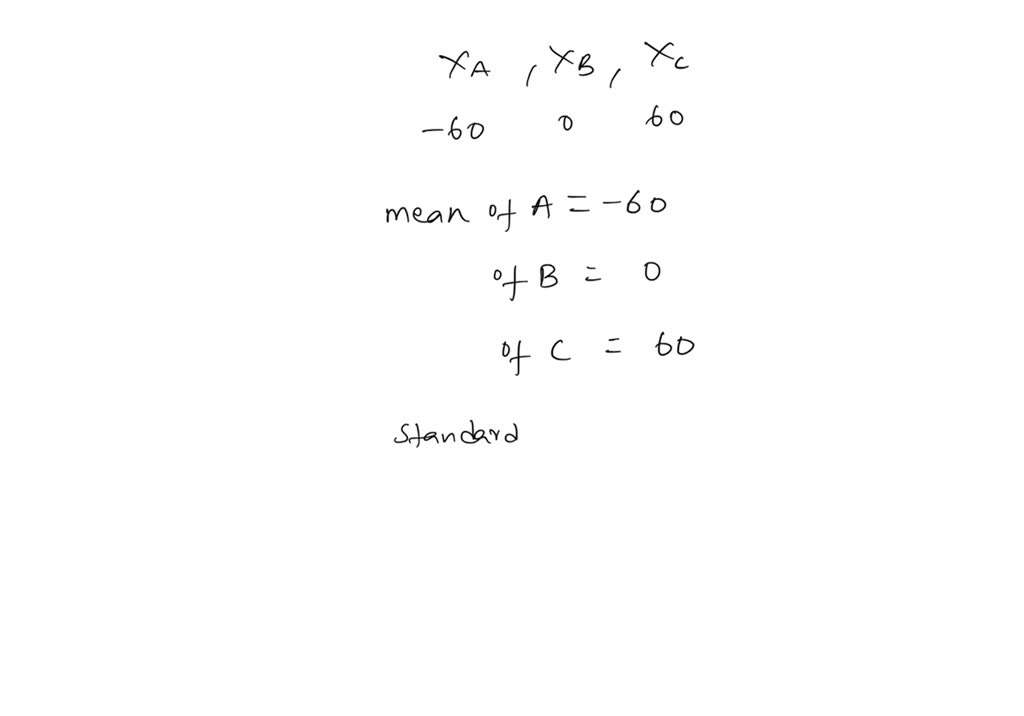 XA , XB , XC
-60 0 60
mean of A = -60
of B = 0
of C = 60
standard